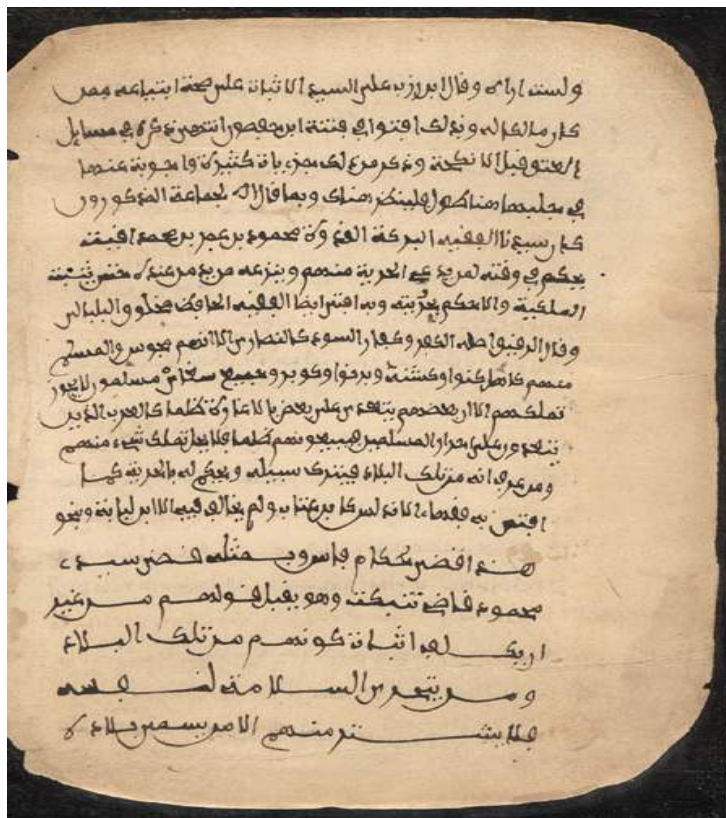 ولست اراه وقال ابن زرب على السيد الاثبات على صحة ابتياعه ممن
كان مالكا له وبذلك افتوا في فتنة ابن حفصون انتهى ذكره في مسايل
العتق قبل الانكحة وذكر من ذلك جزءيات كثيرة واجوبة عندها
في مجلبها هنا طول فلينظر هناك وبما قال الجماعة المذكورون
كان سيدنا الفقيه البركة القدوة محمود بن عمر بن محمد اقيت
يحكم في وقته لمن يدعي الحرية منهم وينزعه من يد من عنده حتى يثبت
الملكية والا حكم بحريته وبه افتى ايضا الفقيه الحافظ مخلوف البلبالي
وقال الرقيق اصله الكفر وكفار السودان كالنصارى الا انهم مجوس والمسلم
منهم كاهل كنوا وكشنة وبرنوا وكوبر وجميع سغاي مسلمون لا يجوز
تملكهم الا ان بعضهم يتعدى على بعض بالاغارة ظلما كالعرب الذين
يتعدون على احرار المسلمين فيبيعونهم ظلما فلا يحل تملك شيء منهم
ومن عرف انه من تلك البلاد فيترك سبيله ويحكم له بالحرية كما
افتى به فقهاء الاندلس كابن عتاب ولم يخالف فيه الا ابن لبابة وبنحو
هذا قضى حكام فاس وبمثله قضى سيدي
محمود قاضي تنبكت وهو يقبل قولهم من غير
ان يكلف اثبات كونهم من تلك البلاد
ومن يتحرى السلامة لنفسه
فلا يشتر منهم الا من يسمى بلاده